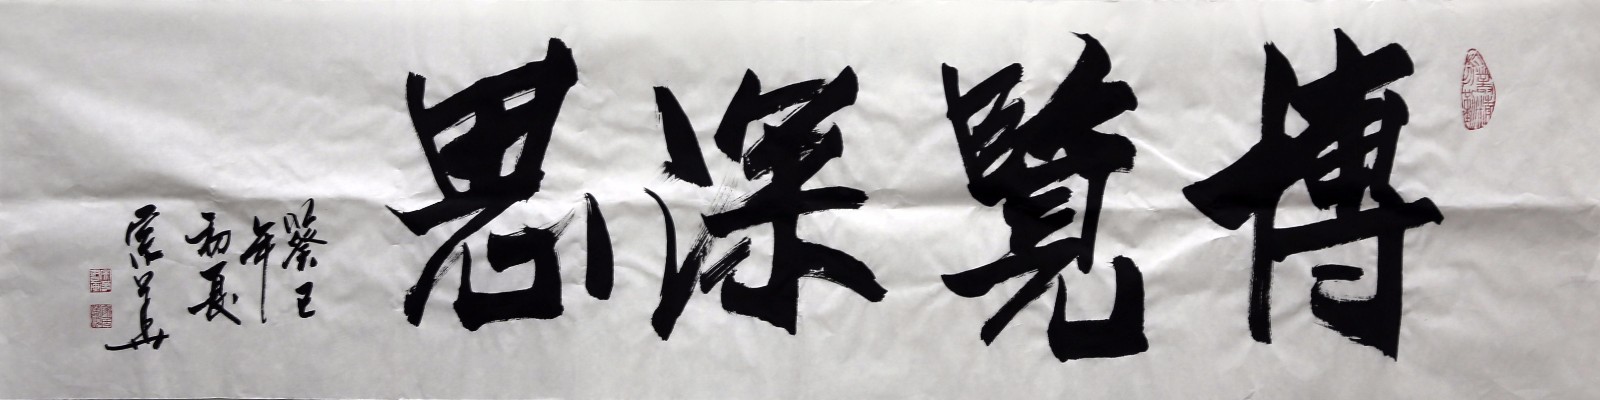 博覽深思
癸巳
年
初夏